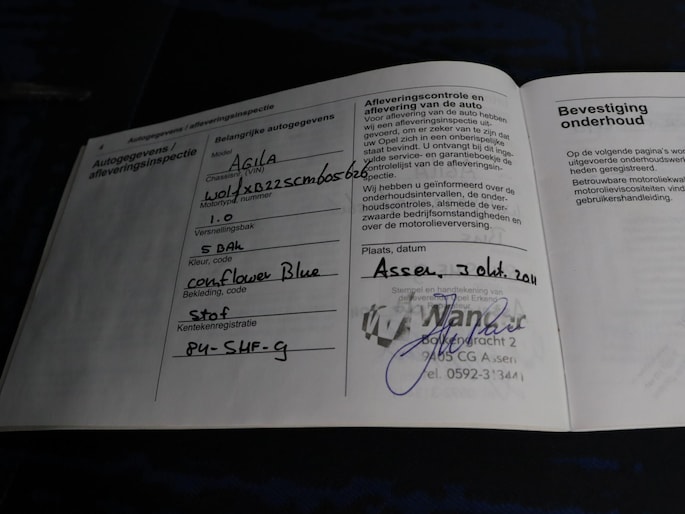 4 Autogegevens / afleveringsinspectie
Autogegevens /
afleveringsinspectie
Belangrijke autogegevens
Model
AGILA
Chassisnr. (VIN)
Motortype, nummer
1.0
Versnellingsbak
5 BAK
Kleur, code
cornflower Blue
Bekleding, code
Stof
Kentekenregistratie
84-SHF-9
Afleveringscontrole en
aflevering van de auto
Voor aflevering van de auto hebben
wij een afleveringsinspectie uit-
gevoerd, om er zeker van te zijn dat
uw Opel zich in een onberispelijke
staat bevindt. U ontvangt bij dit inge-
vulde service- en garantieboekje de
controlelijst van de afleveringsin-
spectie.
Wij hebben u geïnformeerd over de
onderhoudsintervallen, de onder-
houdscontroles, alsmede de ver-
zwaarde bedrijfsomstandigheden en
over de motorolieverversing.
Plaats, datum
Assen, 3 okt. 2011
Stempel en handtekening van
de leverende Opel Erkend
Balkengracht 2
9405 CG Assen
Tel. 0592-313441
Bevestiging
onderhoud
Op de volgende pagina's wor
uitgevoerde onderhoudswerk
heden geregistreerd.
Betrouwbare motoroliekwal
motorolieviscositeiten vind
gebruikershandleiding.